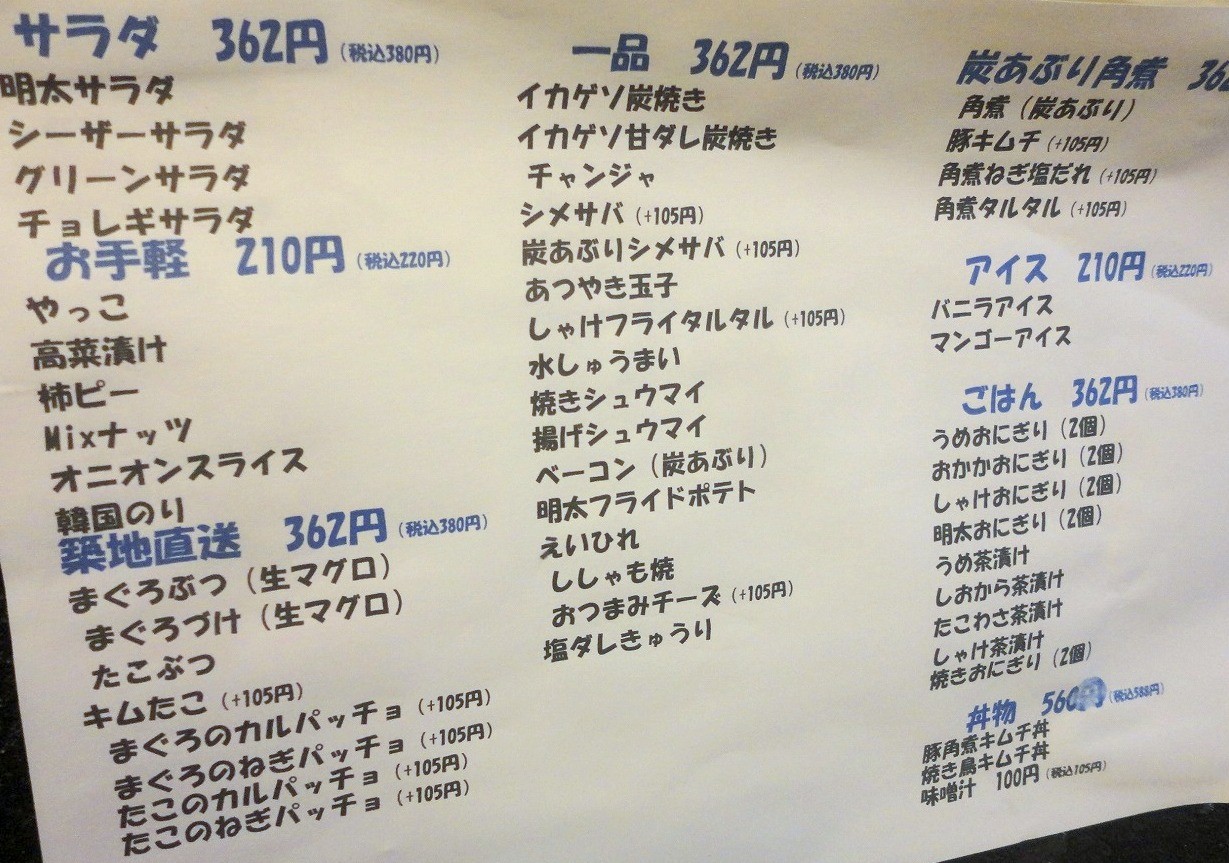 サラダ 362円（税込380円）
明太サラダ
シーザーサラダ
グリーンサラダ
チョレギサラダ
お手軽 210円（税込220円）
やっこ
高菜漬け
柿ピー
Mixナッツ
オニオンスライス
韓国のり
築地直送 362円（税込380円）
まぐろぶつ（生マグロ）
まぐろづけ（生マグロ）
たこぶつ
キムたこ（+105円）
まぐろのカルパッチョ（+105円）
まぐろのねぎパッチョ（+105円）
たこのカルパッチョ（+105円）
たこのねぎパッチョ（+105円）
一品 362円（税込380円）
イカゲソ炭焼き
イカゲソ甘ダレ炭焼き
チャンジャ
シメサバ（+105円）
炭あぶりシメサバ（+105円）
あつやき玉子
しゃけフライタルタル（+105円）
水しゅうまい
焼きシュウマイ
揚げシュウマイ
ベーコン（炭あぶり）
明太フライドポテト
えいひれ
ししゃも焼
おつまみチーズ（+105円）
塩ダレきゅうり
炭あぶり角煮 362
角煮（炭あぶり）
豚キムチ（+105円）
角煮ねぎ塩だれ（+105円）
角煮タルタル（+105円）
アイス 210円（税込220円）
バニラアイス
マンゴーアイス
ごはん 362円（税込380円）
うめおにぎり（2個）
おかかおにぎり（2個）
しゃけおにぎり（2個）
明太おにぎり（2個）
うめ茶漬け
しおから茶漬け
たこわさ茶漬け
しゃけ茶漬け
焼きおにぎり（2個）
丼物 560円（税込588円）
豚角煮キムチ丼
焼き鳥キムチ丼
味噌汁 100円（税込105円）